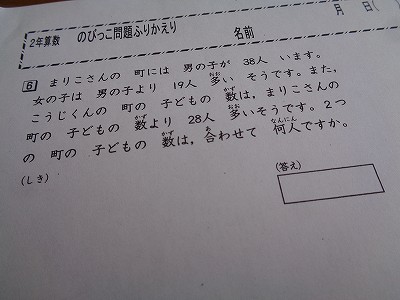 月 日(
2年算数 のびっこ問題ふりかえり 名前
6 まりこさんの 町には 男の子が 38人 います。
女の子は 男の子より 19人 多い そうです。また,
こうじくんの 町の 子どもの 数は, まりこさんの
町の 子どもの 数より 28人 多いそうです。2つ
の 町の 子どもの 数は, 合わせて 何人ですか。
(しき)
(答え)